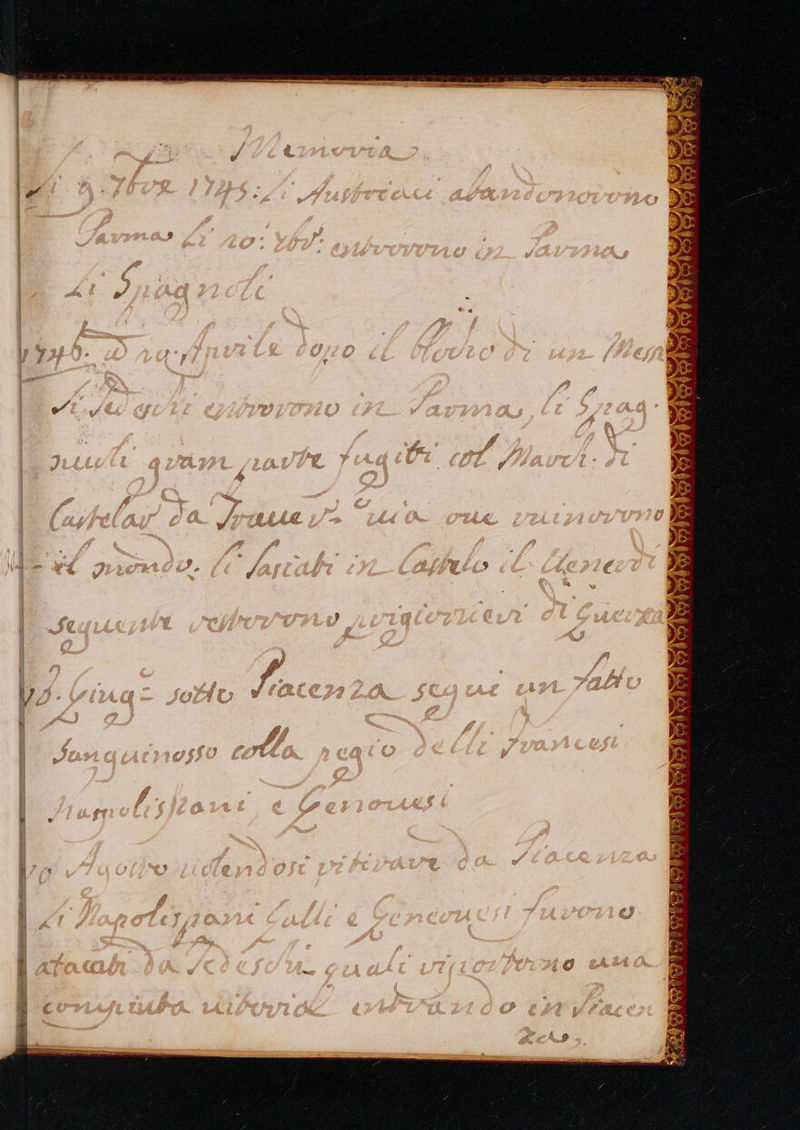 Memoria
Li 9. 7bre 1745: Li Austriaci abandonorono
Parma Li 10: 7br: entrorono in Parma
Li Spagnoli
1746. a Aprile dopo il blocho di un Mese
Li Tedeschi entrorono in Parma, li Spag-
nuoli gram parte fugiti col March. di
Castelar da uia oue ruinorono
il mondo. li lasciati in Castelo il Uenerdi
seguente restorono prigionieri di Guerra
Giug. sotto Piacenza segui un fatto
Sanguinosso colla pegio delli Francesi
Napolispani e Genouesi
Agosto uolendosi ritirare da Piacenza
Li Napolispani Galli e Geneouesi furono
atacati da Tedeschi quali riportorno una
compiuta uitoria entrando in Piacen
za.